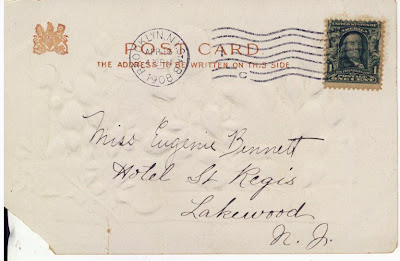 POST CARD
THE ADDRESS TO BE WRITTEN ON THIS SIDE
BROOKLYN, N.Y.
APR
1908
C
Miss Eugenie Bennett
Hotel St Regis
Lakewood
N. J.